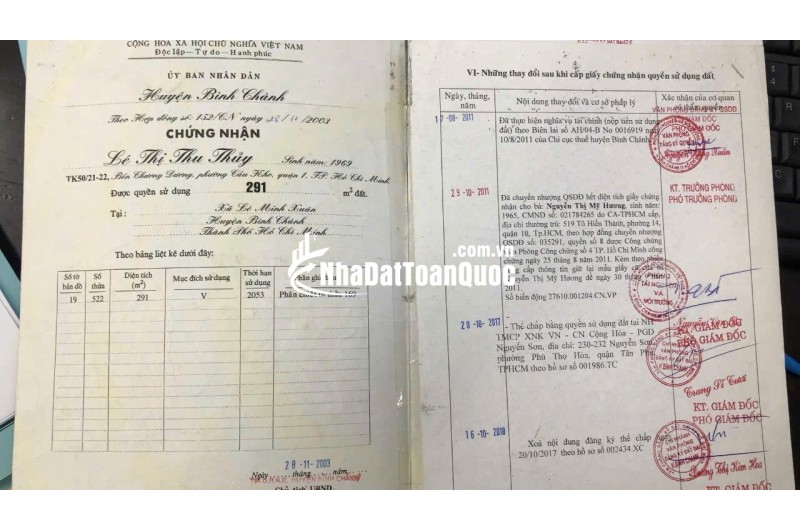 CỘNG HÒA XÃ HỘI CHỦ NGHĨA VIỆT NAM
Độc lập - Tự do - Hạnh phúc
ỦY BAN NHÂN DÂN
Huyện Bình Chánh
Theo Hợp đồng số: 152/CN ngày 28/11/2003
CHỨNG NHẬN
Lê Thị Thu Thủy Sinh năm: 1969
TK50/21-22, Bến Chương Dương, phường Cầu Kho, quận 1, TP. Hồ Chí Minh
Được quyền sử dụng 291 m² đất.
Tại: Xã Lê Minh Xuân
Huyện Bình Chánh
Thành Phố Hồ Chí Minh
Theo bảng liệt kê dưới đây:
Số tờ bản đồ Số thửa Diện tích (m²) Mục đích sử dụng Thời hạn sử dụng Phần ghi
19 522 291 V 2053 Phân chiết từ thửa 169
28-11-2003
Ngày tháng năm
VI- Những thay đổi sau khi cấp giấy chứng nhận quyền sử dụng đất
Ngày, tháng, năm Nội dung thay đổi và cơ sở pháp lý Xác nhận của cơ quan có thẩm quyền
17-08-2011
Đã thực hiện nghĩa vụ tài chính (nộp tiền sử dụng
đất) theo Biên lai số AH/04-B No 0016919 ngày
10/8/2011 của Chi cục thuế huyện Bình Chánh
PHÓ GIÁM ĐỐC
VĂN PHÒNG
ĐĂNG KÝ
29-10-2011
Đã chuyển nhượng QSDĐ hết diện tích giấy chứng
nhận cho bà: Nguyễn Thị Mỹ Hương, sinh năm:
1965, CMND số: 021784265 do CA-TPHCM cấp,
địa chỉ thường trú: 519 Tô Hiến Thành, phường 14,
quận 10, Tp.HCM, theo hợp đồng chuyển nhượng
QSDĐ số: 035291, quyển số 8 được Công chứng
Phòng Công chứng số 4 TP. Hồ Chí Minh công
chứng ngày 25 tháng 8 năm 2011. Kèm theo
cấp thông tin giữ lại mẫu giấy
Nguyễn Thị Mỹ Hương đề ngày 30 tháng
2011.
Số biến động 27610.001204.CN.VP
KT. TRƯỞNG PHÒNG
PHÓ TRƯỞNG PHÒNG
PHÒNG
TÀI NGUYÊN
VÀ
MÔI TRƯỜNG
NhaDatToanQuoc
.com.vn
20-10-2017
- Thế chấp bằng quyền sử dụng đất tại NH
TMCP XNK VN - CN Cộng Hòa - PGD
Nguyễn Sơn, địa chỉ: 230-232 Nguyễn Sơn
phường Phú Thọ Hòa, quận Tân Phú
TPHCM theo hồ sơ số 001986.TC
KT. GIÁM ĐỐC
PHÓ GIÁM ĐỐC
Trang Sĩ Tươi
16-10-2018
Xoá nội dung đăng ký thế chấp
20/10/2017 theo hồ sơ số 002434.XC
KT. GIÁM ĐỐC
PHÓ GIÁM ĐỐC
CHI NHÁNH
VĂN PHÒNG
ĐĂNG KÝ ĐẤT ĐAI
H.BÌNH CHÁNH
KT. GIÁM ĐỐC